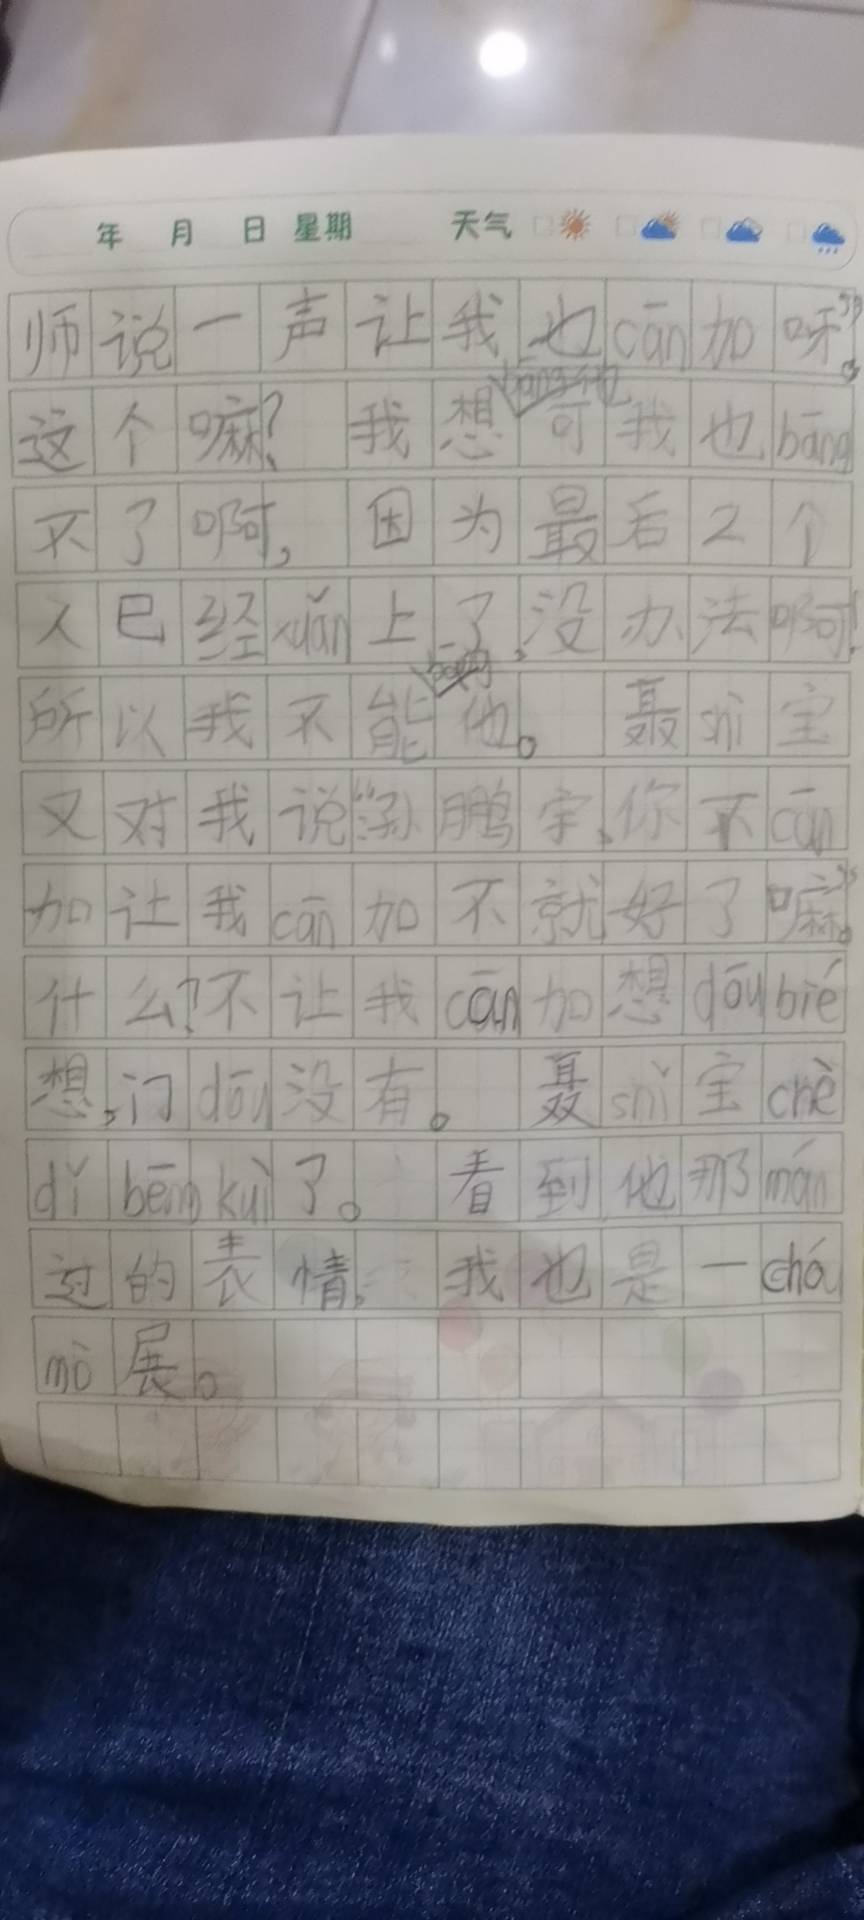 年 月 日 星期 天气
师说一声让我也cān加呀。”
这个嘛？我想bāng他可我也bāng
不了啊，因为最后2个
人已经xuǎn上了，没办法啊！
所以我不能bāng他。聂shì宝
又对我说“孙鹏宇，你不cān
加让我cān加不就好了嘛。”
什么？不让我cān加想dōu bié
想，门dōu没有。聂shì宝chè
dǐ bēng kuì了。看到他那nán
过的表情，我也是一chóu
mò展。